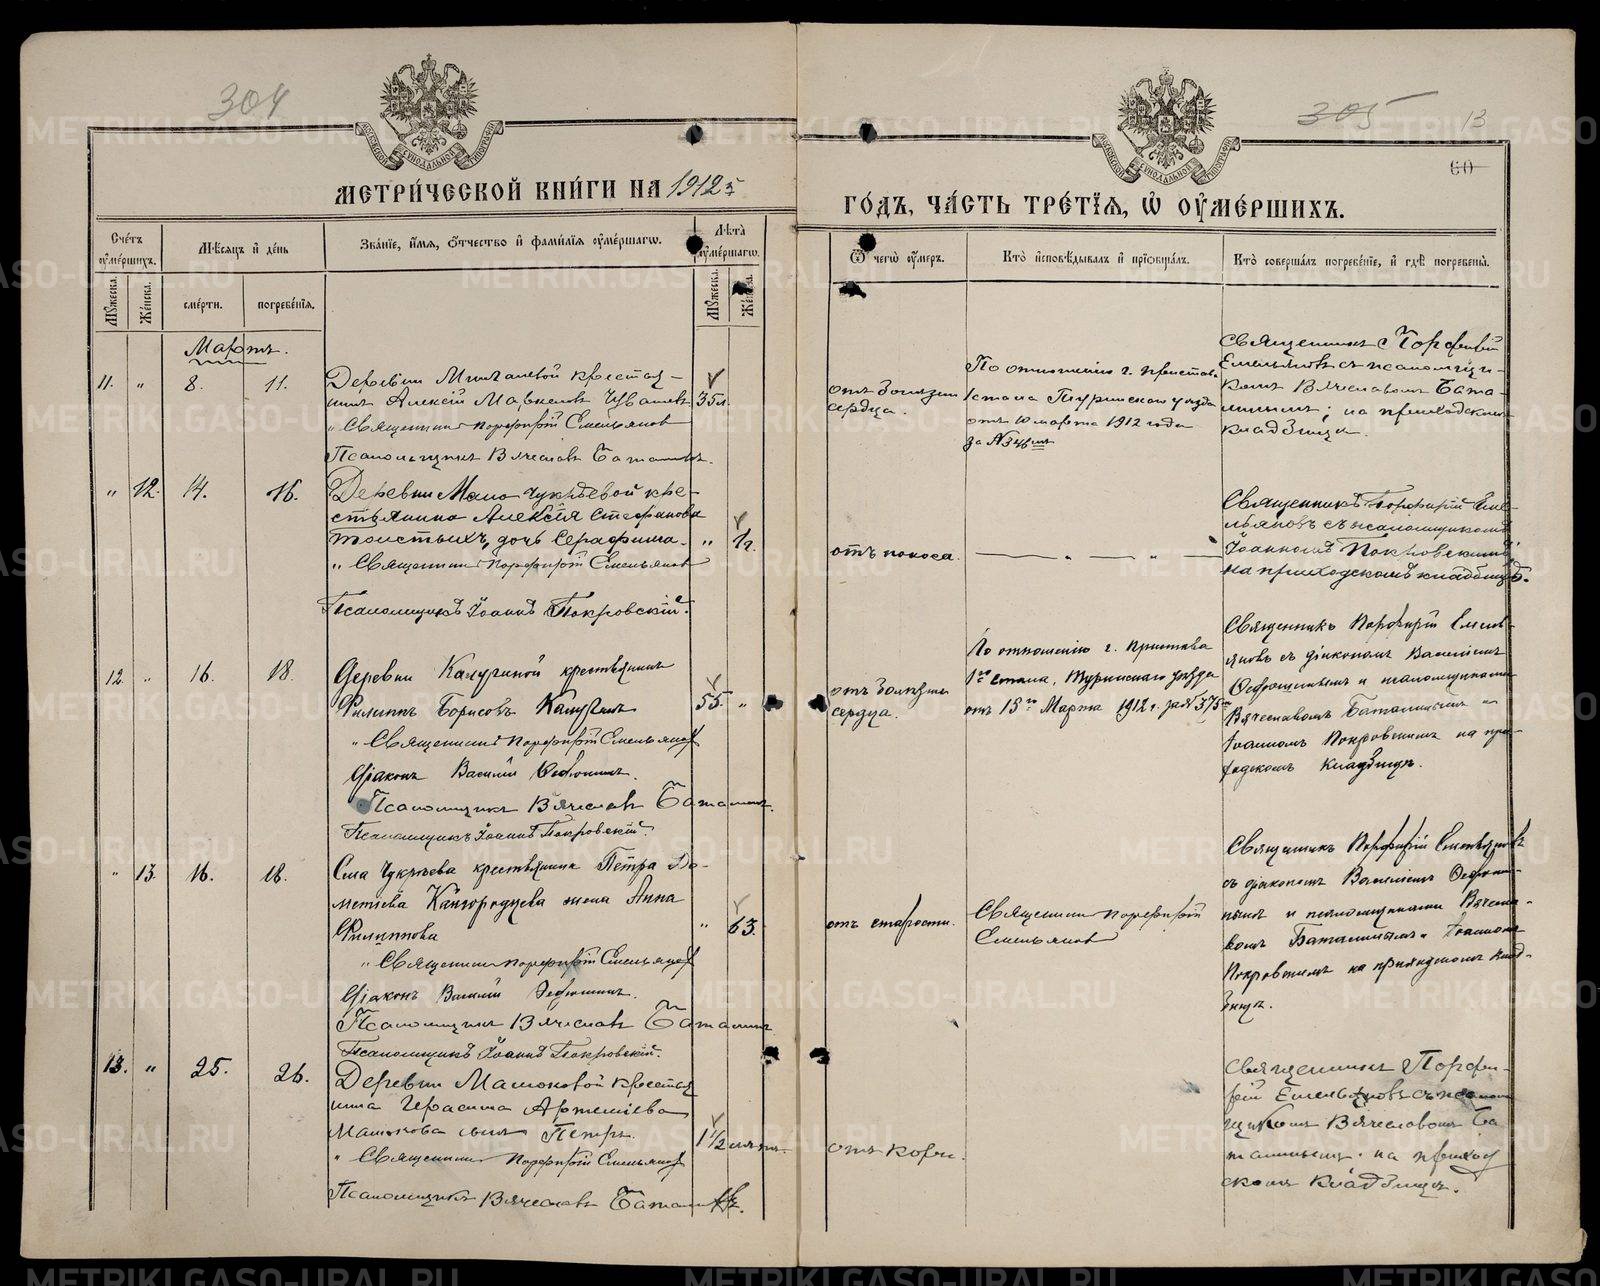 304
305
13
60
МОСКОВСКОЙ СѴНОДАЛЬНОЙ ТИПОГРАФІИ
МЕТРИ́ЧЕСКОЙ КНИ́ГИ НА 1912
ГО́ДЪ, ЧА́СТЬ ТРЕ́ТІѦ, Ѡ҆ ОУ҆МЕ́РШИХЪ.
Сче́тъ оу҆ме́ршихъ.
Мѣ́сѧцъ и҆ де́нь
Зва́нїе, и҆́мѧ, ѻ҆́тчество и҆ фами́лїѧ оу҆ме́ршагѡ.
Лѣ́та оу҆ме́ршагѡ.
Ѿ чегѡ̀ оу҆́меръ.
Кто̀ и҆сповѣ́дывалъ и҆ прїѡбща́лъ.
Кто̀ соверша́лъ погребе́нїе, и҆ гдѣ̀ погребены̀.
Мꙋ́жеска.
Же́нска.
сме́рти.
погребе́нїѧ.
Мꙋ́жеска.
Же́нска.
Мартъ.
11. " 8. 11.
Деревни крестья-
нинъ Алексій 35л.
" Священникъ Порфирій Емельяновъ
Псаломщикъ Вячеславъ Баталинъ.
отъ болезни
сердца.
По отношенію г. пристава
1 стана Туринскаго уезда
отъ 10 марта 1912 года
за №
Священникъ Порфирій
Емельяновъ съ псаломщи-
комъ Вячеславомъ Бата-
линымъ; на приходскомъ
кладбище.
" 12. 14. 16.
Деревни Мало-Чукреевой кре-
стьянина Алексія Стефанова
Толстыхъ, дочь Серафима. "
" Священникъ Порфирій Емельяновъ
Псаломщикъ Іоаннъ Покровскій.
отъ поноса.
— " — " —
Священникъ Порфирій Еме-
льяновъ съ псаломщикомъ
Іоанномъ Покровскимъ,
на приходскомъ кладбищѣ.
12. " 16. 18.
Деревни крестьянинъ
Филиппъ Борисовъ 55. "
" Священникъ Порфирій Емельяновъ
Діаконъ Василій
Псаломщикъ Вячеславъ Баталинъ.
Псаломщикъ Іоаннъ Покровскій.
отъ болезни
сердца.
По отношенію г. пристава
1го стана, Туринскаго уезда
отъ 15го Марта 1912 г. за № 575
Священникъ Порфирій Емель-
яновъ съ діакономъ Василіемъ
и псаломщиками
Вячеславомъ Баталинымъ и
Іоанномъ Покровскимъ на при-
ходскомъ кладбище.
" 13 16. 18.
Села Чукреева крестьянина Петра До-
метіева Кайгородцева жена Анна
Филиппова " 63.
" Священникъ Порфирій Емельяновъ
Діаконъ Василій
Псаломщикъ Вячеславъ Баталинъ
Псаломщикъ Іоаннъ Покровскій.
отъ старости.
Священникъ Порфирій
Емельяновъ
Священникъ Порфирій Емельяновъ
съ діакономъ Василіемъ
и псаломщиками Вячесла-
вомъ Баталинымъ и Іоанномъ
Покровскимъ на приходскомъ клад-
бище.
13. " 25. 26.
Деревни Машоковой крестья
нина Герасима Артеміева
Машокова сынъ Петръ. 1 1/2
" Священникъ Порфирій Емельяновъ
Псаломщикъ Вячеславъ Баталинъ.
отъ кори.
Священникъ Порфи-
рій Емельяновъ съ псалом
щикомъ Вячеславомъ Ба
талинымъ на приход
скомъ кладбище.
METRIKI.GASO-URAL.RU